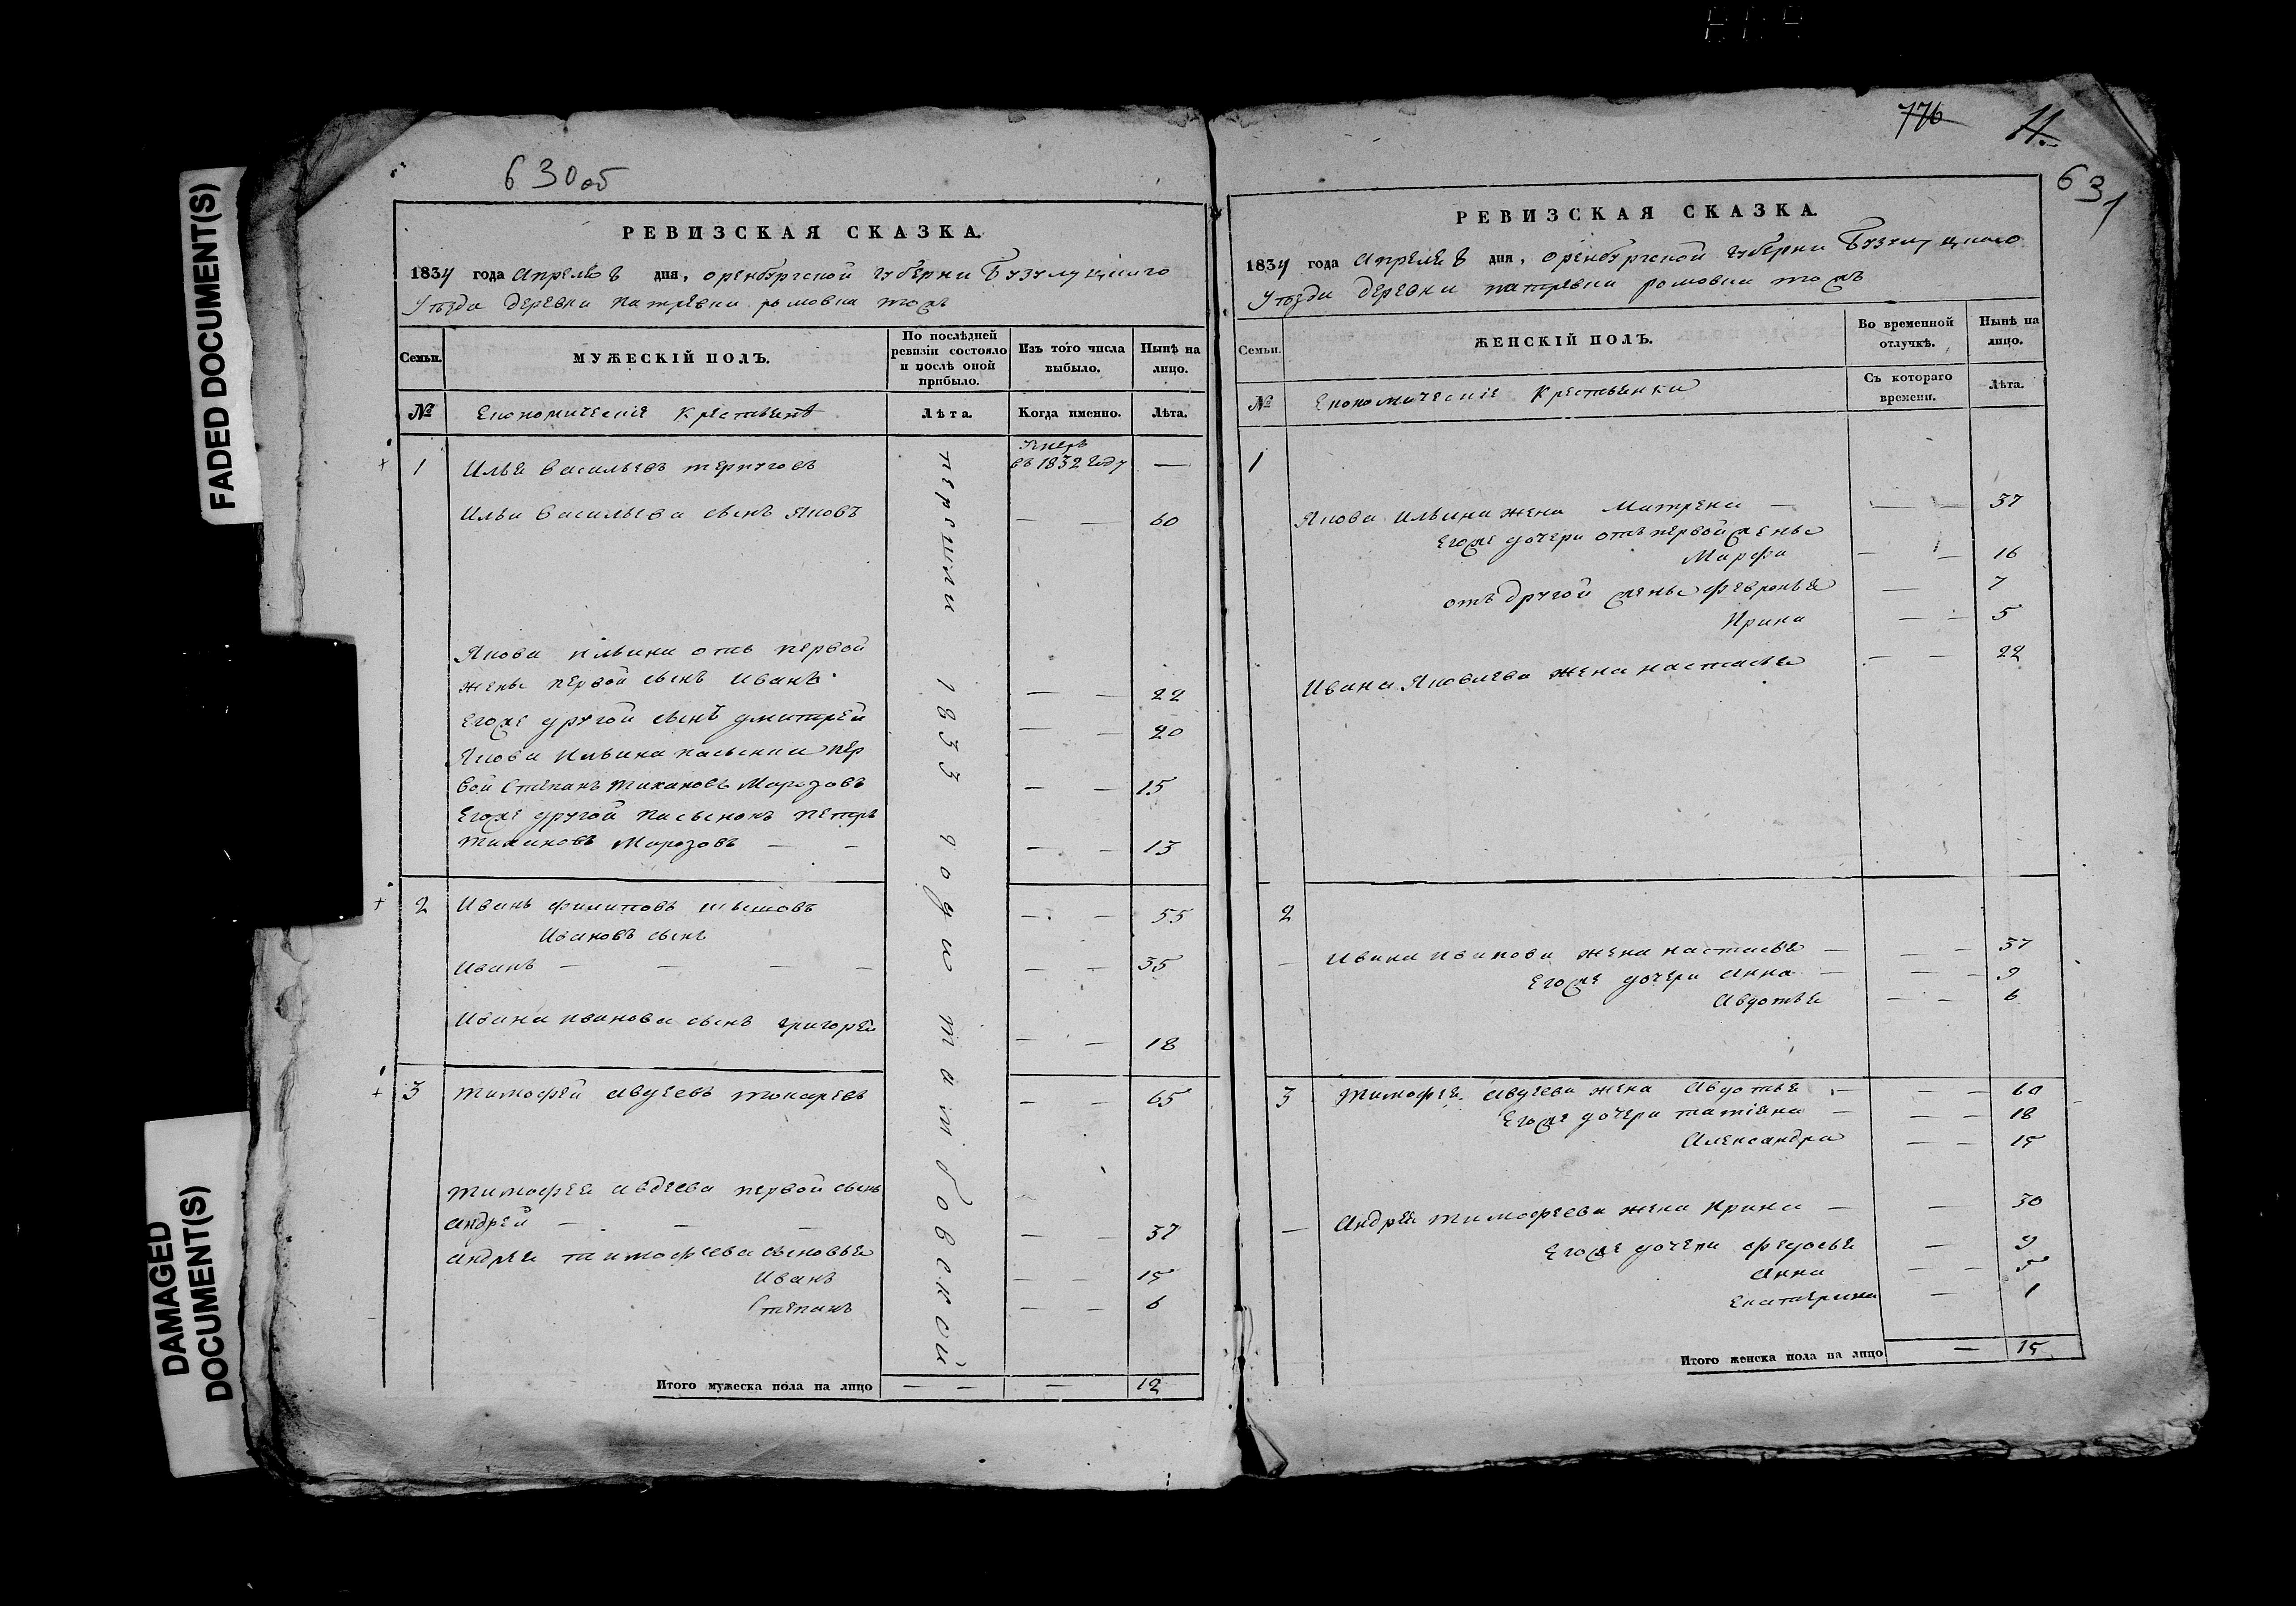 FADED DOCUMENT(S)
DAMAGED
DOCUMENT(S)
630об
РЕВИЗСКАЯ СКАЗКА.
1834 года Апреля 8 дня, оренбургской губерни Бузулуцкаго
Уезда деревни патревки ромовка тожъ
Семьи.
МУЖЕСКІЙ ПОЛЪ.
По послѣдней ревизіи состояло и послѣ оной прибыло.
Изъ того числа выбыло.
Нынѣ на лицо.
№
Економическіе крестьянѣ
Лѣта.
Когда именно.
Лѣта.
перешли 1833 году тамбовской
1 Илья Васильевъ терпуговъ
умеръ
въ 1832 году —
Ильи Васильева сынъ Яковъ — — 60
Якова ильина отъ первой
жены первой сынъ иванъ — — 22
Егоже другой сынъ дмитрей — — 20
Якова Ильина пасынки пер
вой Степанъ тихановъ Марозовъ — — 15
Егоже другой пасынокъ петръ
тихановъ Марозовъ — — — — 13
2 Иванъ филиповъ — — 55
Ивановъ сынъ
Иванъ — — — — — — 35
Ивана иванова сынъ григорей — — 18
3 тимофей авдеевъ токаревъ — — 65
тимофея авдеева первой сынъ
андрей — — — — — 37
андрея тимофеева сыновья
Иванъ — — 15
Степанъ — — 6
Итого мужеска пола на лицо — — — 12
776
11.
631
РЕВИЗСКАЯ СКАЗКА.
1834 года Апреля 8 дня, оренбургской губерни Бузулуцкаго
Уезда деревни патревки ромовка тожъ
Семьи.
ЖЕНСКІЙ ПОЛЪ.
Во временной отлучкѣ.
Нынѣ на лицо.
№
Економическіе крестьянки
Съ котораго времени.
Лѣта.
1
Якова Ильина жена Матрена — — — 37
Егоже дочери отъ первой жены
Марфа — — 16
отъ другой жены февронья — 7
Ирина — — 5
Ивана Яковлева жена настасья — — 22
2
— Ивана иванова жена настасья — — — 37
Егоже дочери анна — — — 9
Авдотья — — 6
3 тимофея авдеева жена Авдотья — — — 60
Егоже дочери татіяна — — — 18
Александра — — 15
— Андрея тимофеева жена Ирина — — 30
Егоже дочери федосья — 9
анна — — 5
Екатерина — 1
Итого женска пола на лицо — 15